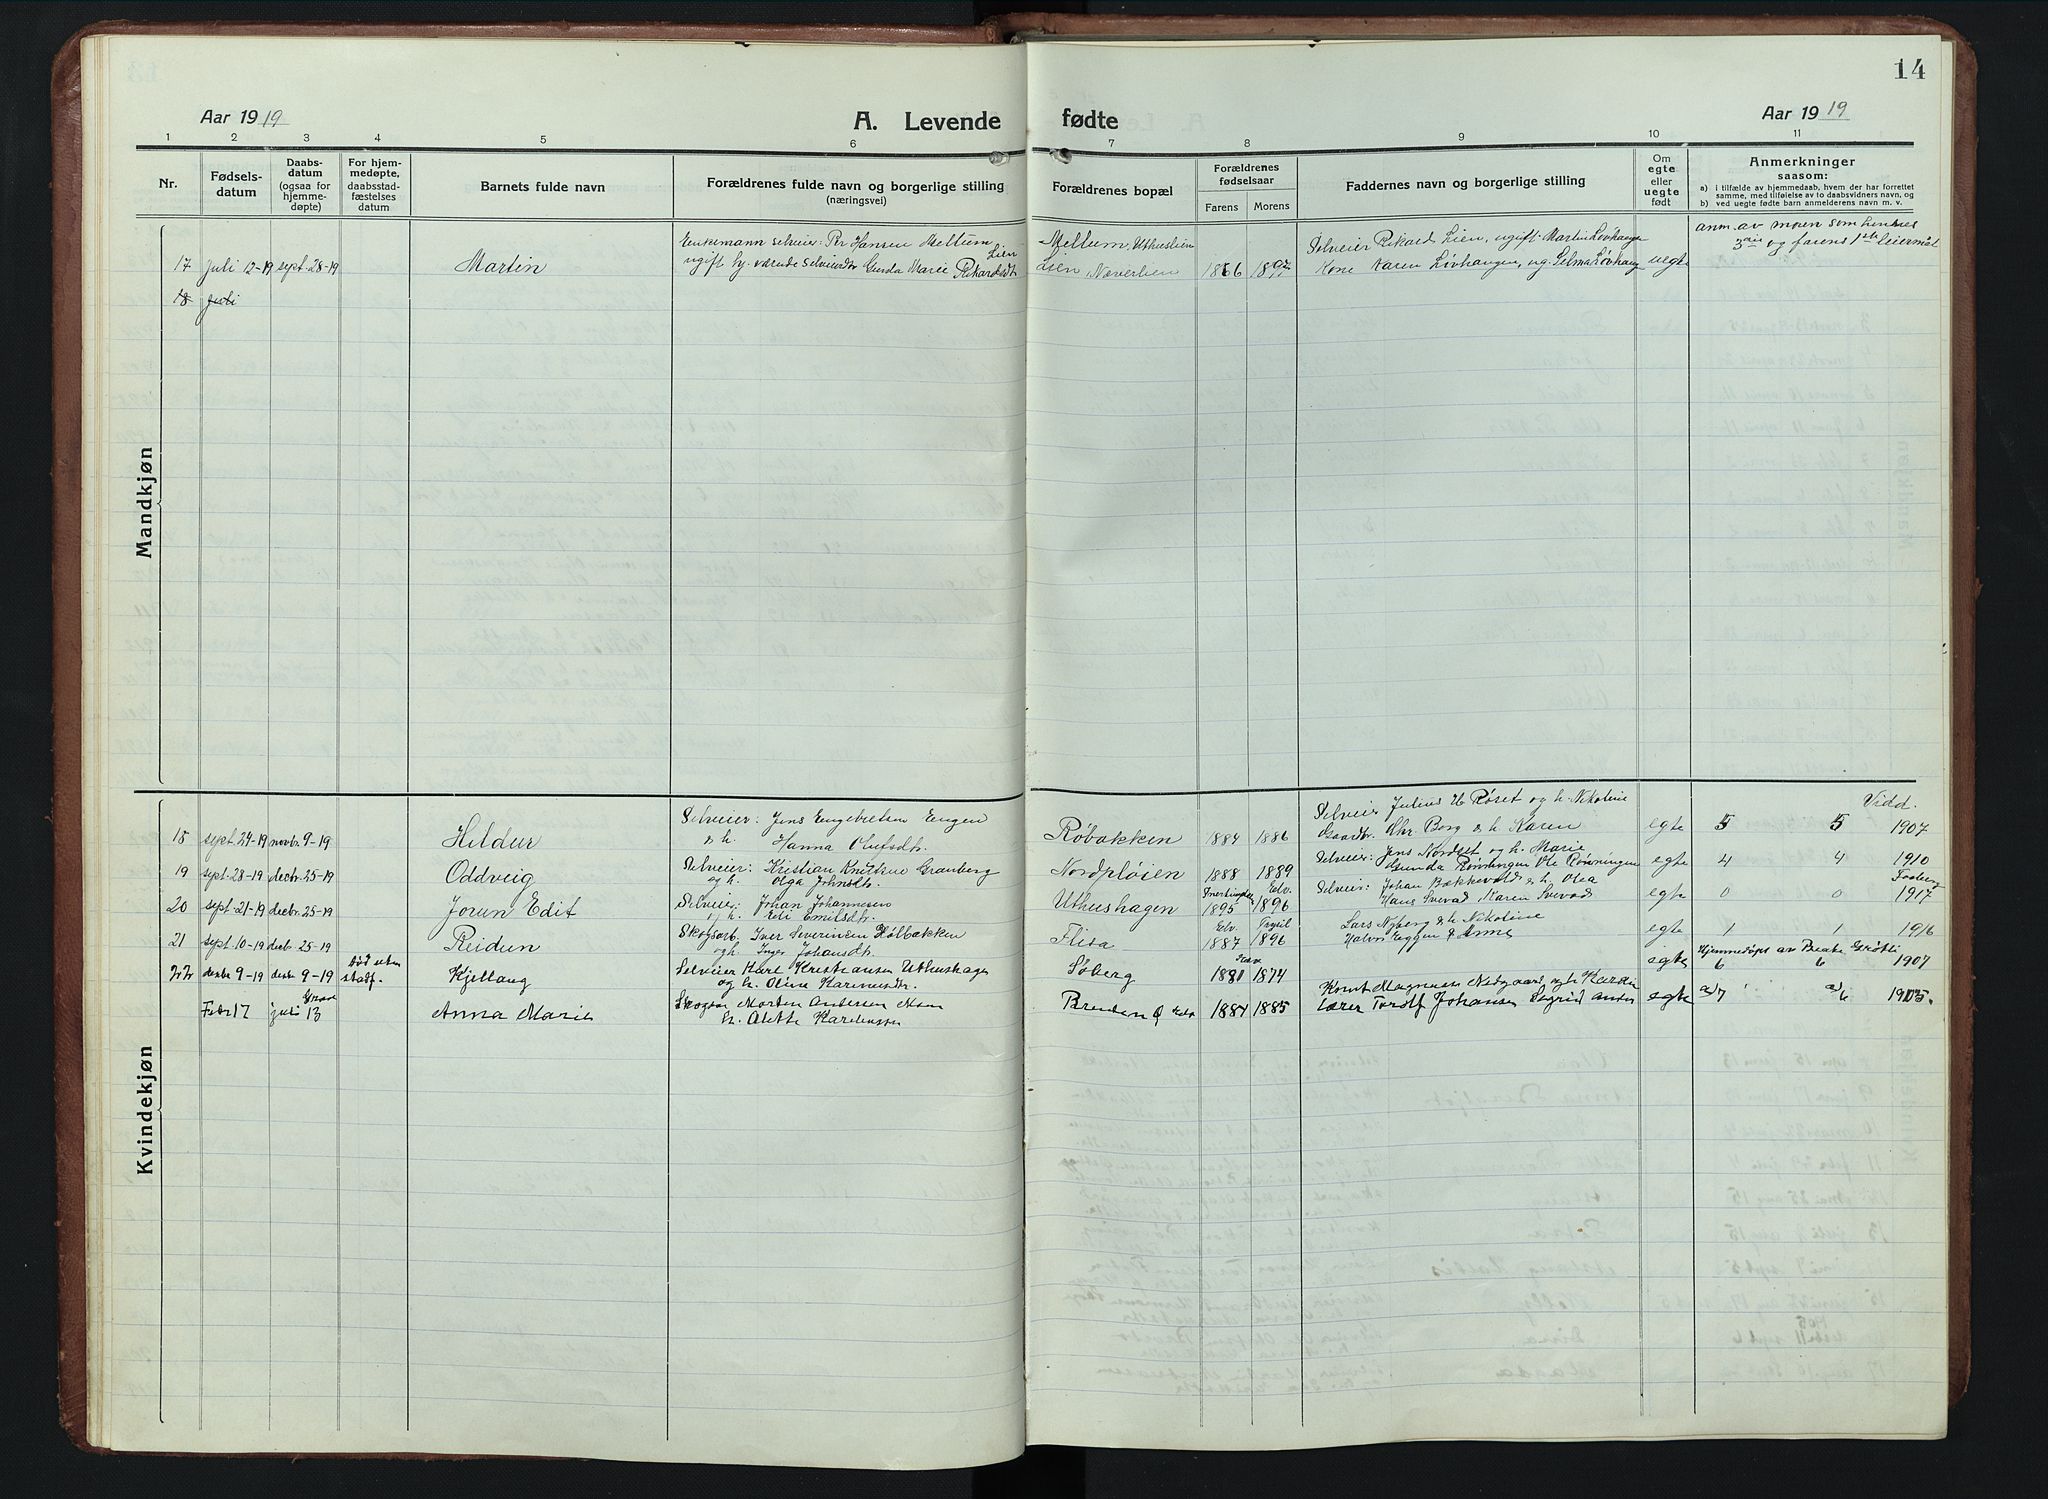 14
Aar 1919
A. Levende fødte
Aar 1919
1 2 3 4 5 6 7 8 9 10 11
Nr.
Fødsels-
datum
Daabs-
datum
(ogsaa for
hjemme-
døpte)
For hjem-
medøpte,
daabsstad-
fæstelses
datum
Barnets fulde navn
Forældrenes fulde navn og borgerlige stilling
(næringsvei)
Forældrenes bopæl
Forældrenes
fødselsaar
Farens Morens
Faddernes navn og borgerlige stilling
Om
egte
eller
uegte
født
Anmerkninger
saasom:
a) i tilfælde av hjemmedaab, hvem der har forrettet
samme, med tilføielse av to daabsvidners navn, og
b) ved uegte fødte barn anmelderens navn m. v.
Mandkjøn
Enkemann selveier: Pr Hansen Mellum Mellum, Uthuslien Selveier Rikard Lien, ugift Martin Løvhaugen anm. av moen som hennes
3die og farens 1ste leiermål
17 Juli 12-19 sept-28-19 Martin ugift hj. værende selveierdtr Gunda Marie Rikardsdtr Lien Lien Næverlien 1866 1897 Kone Karen Løvhaugen, ug. Selma Løvhaug uegte
18 Juli
Kvindekjøn
18 sept 24-19 novbr. 9-19 Hildur Selveier: Jens Engebretsen Engen Røbakken 1884 1886 Selveier Julius H Røset og h. Nikoline egte 5 5 Vidd. 1907
& h. Hanna Olufsdtr. Gaardbr. Chr Borg & h. Karen
19 sept-28-19 decbr. 25-19 Oddveig Selveier: Kristian Knutsen Granberg Nordpløien 1888 1889 Selveier: Jens Nordset og h. Marie egte 4 4 1910
og h. Olga Johnsdtr. Gunda Rønningen Ole Rønningen
20 sept 21-19 decbr. 25-19 Jorun Edit Selveier: Johan Johannesen Uthushagen 1895 Elv. 1896 Selveier: Johan Bækkevold & h. Olea egte 0 0 Faaberg 1917
og h. Edi Emilsdtr. Hans Svevad Karen Svevad
21 sept 10-19 decbr 25-19 Reidun Skogsarb. Iver Severinsen Hølbækken Flisa Elv. 1887 Trysil 1896 Lars Nyberg & h Nikoline egte 1 1 1916
og h. Inger Johansdtr. Halvor Eggen & Anne
22 decbr 9-19 decbr 9-19 Død uten stadf. Kjellaug Selveier Karl Kristiansen Uthushagen Søberg 1880 1874 egte Hjemmedøpt av Beate Grøtli
og h. Oline Karinusdtr. 6 6 1907
Febr 17 juli 13 Anna Marie Skogsar Morten Andersen Moen Brenden Ø Elv 1884 1885 Knut Magnussen Nedgaard, og h. Karen egte 7 6 1905.
h. Alette Karlensen lærer Torolf Johansen Sigrid